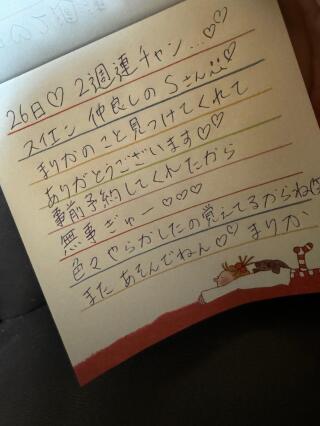 26日♡ 2週連チャン...♡♡
スイエン 仲良しのSさん♡
まりかのこと見つけてくれて
ありがとうございます♡♡
事前予約してくれたから
無事ぎゅー♡♡♡
色々やらかしたの覚えてるからね
また あそんでねん♡♡ まりか